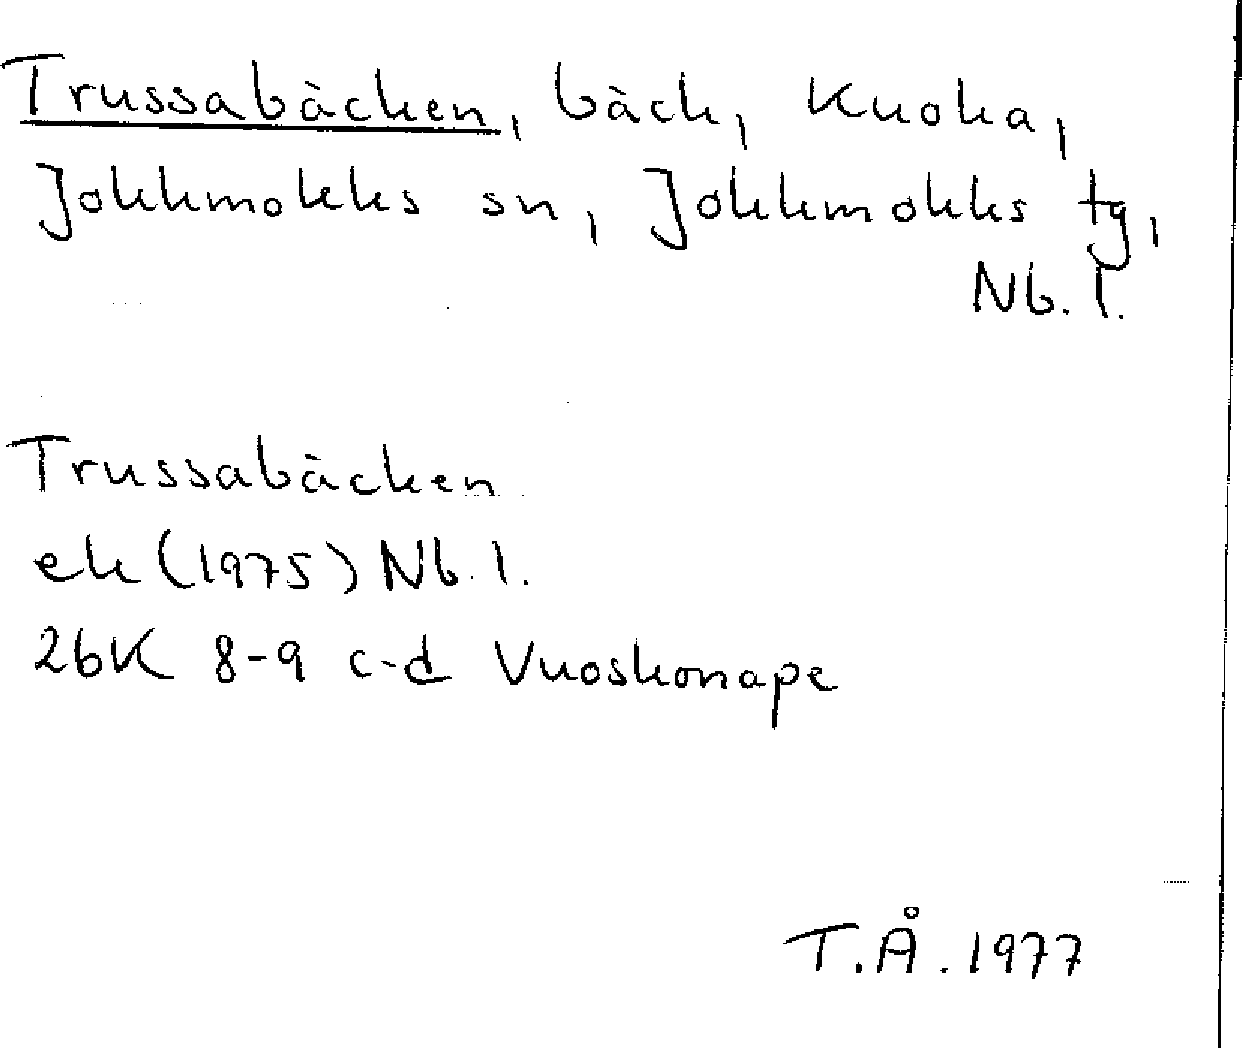 Trussabäcken, bäck, Kuoka,
Jokkmokks sn, Jokkmokks tg,
Nb. l.
Trussabäcken
ek (1975) Nb. l.
26K 8-9 c-d Vuoskonape
T.Å. 1977